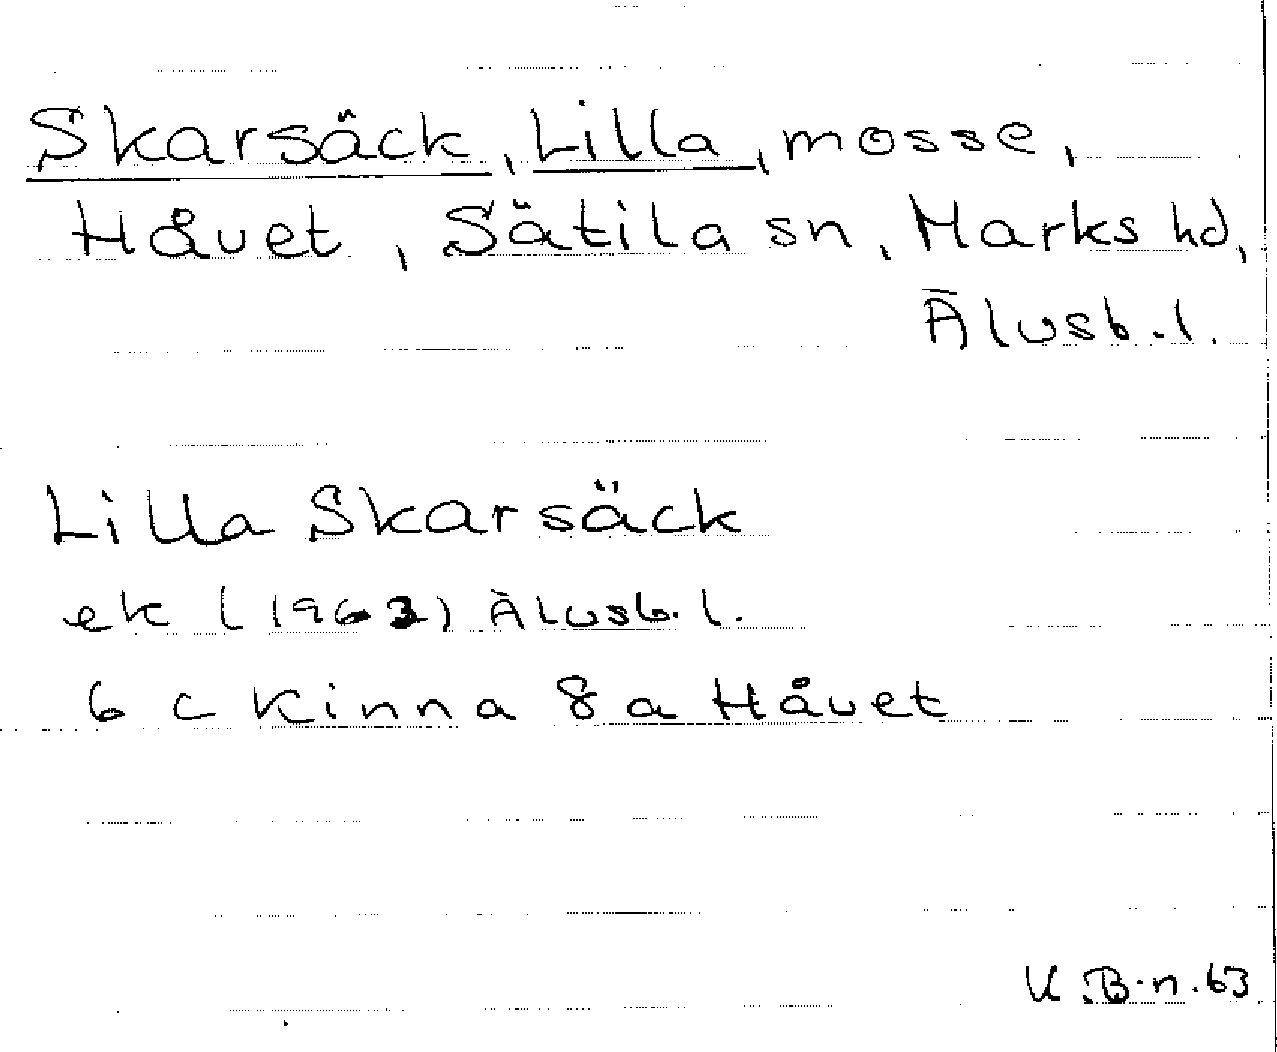 Skarsäck, Lilla, mosse,
Håvet, Sätila sn, Marks hd,
Älvsb. l.
Lilla Skarsäck
ek (1963) Älvsb. l.
6 c Kinna 8 a Håvet
K.B-n. 63